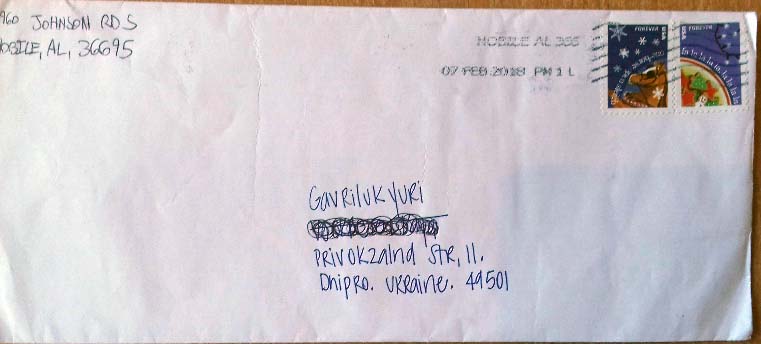 960 JOHNSON RD S
MOBILE, AL, 36695
MOBILE AL 366
07 FEB 2018 PM 1 L
FOREVER USA
FOREVER USA
Gavriluk Yuri
Privokzalnd Str, 11.
Dnipro. Ukraine. 49501